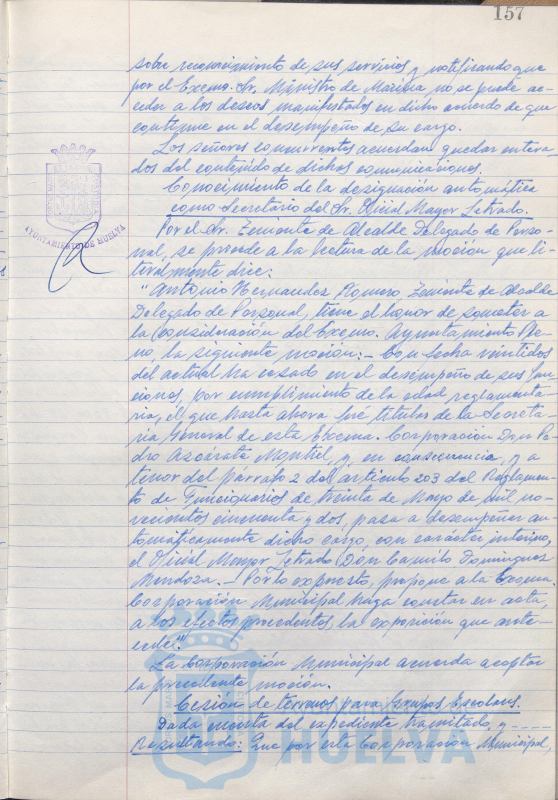 157
sobre reconocimiento de sus servicios y notificando que
por el Excmo. Sr. Ministro de Marina no se puede ac-
ceder a los deseos manifestados en dicho acuerdo de que
continue en el desempeño de su cargo.
Los señores concurrentes acuerdan quedar entera-
dos del contenido de dichas comunicaciones.
Conocimiento de la designación automática
como Secretario del Sr. Oficial Mayor Letrado.
Por el Sr. Teniente de Alcalde Delegado de Perso-
nal, se procede a la lectura de la moción que li-
teralmente dice:
"Antonio Hernandez Piquero, Teniente de Alcalde
Delegado de Personal, tiene el honor de someter a
la consideración del Excmo. Ayuntamiento Ple-
no, la siguiente moción:- Con fecha veintidos
del actual ha cesado en el desempeño de sus fun-
ciones, por cumplimiento de la edad reglamenta-
ria, el que hasta ahora fué titular de la Secreta-
ria General de esta Excma. Corporación Don Pe-
dro Azcárate Montiel, y, en consecuencia, y a
tenor del párrafo 2 del articulo 203 del Reglamen-
to de Funcionarios de treinta de Mayo de mil no-
vecientos cincuenta y dos, pasa a desempeñar au-
tomáticamente dicho cargo, con carácter interino,
el Oficial Mayor Letrado Don Camilo Dominguez
Mendoza.- Por lo expuesto, propone a la Excma
Corporación Municipal haga constar en acta,
a los efectos procedentes, la exposición que ante-
cede".
La Corporación Municipal acuerda aceptar
la precedente moción.
Cesión de terrenos para Grupos Escolares.
Dada cuenta del expediente tramitado, y ----
Resultando: Que por esta Corporación Municipal,
AYUNTAMIENTO DE HUELVA
HUELVA